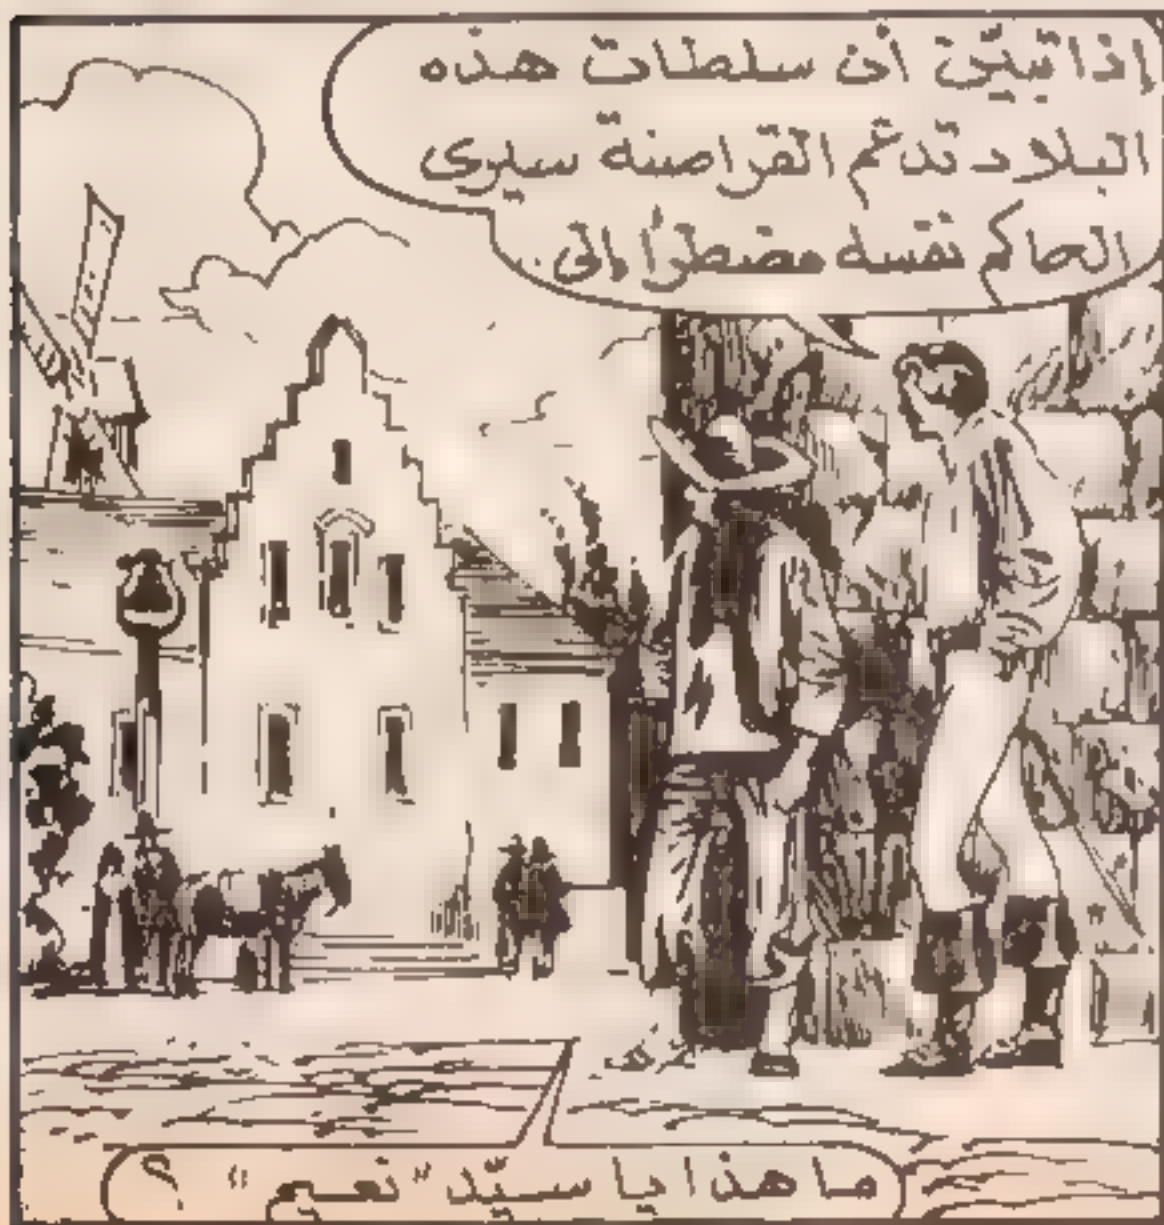 إذا تبيّن أن سلطات هذه
البلاد تدعم القراصنة سيرى
الحاكم نفسه مضطرًا إلى..
ما هذا يا سيّد "نعيم" ؟